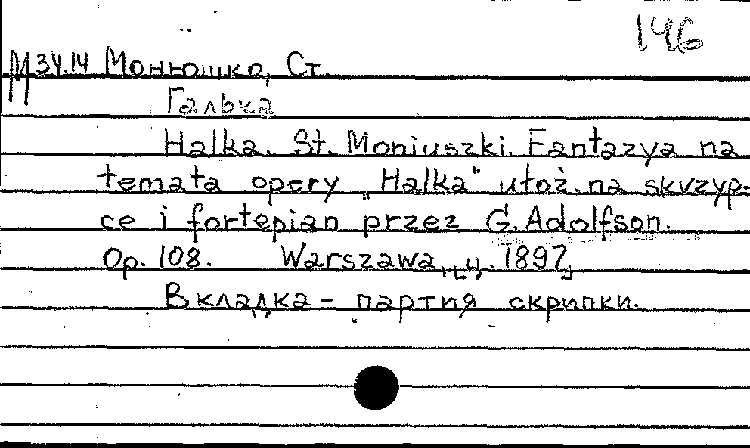 146
М 34.14 Монюшко, Ст.
Галька
Halka. St. Moniuszki. Fantazya na
temata opery „Halka" ułoż. na skrzyp-
ce i fortepian przez G. Adolfson.
Op. 108. Warszawa, ц. 1897
Вкладка – партия скрипки.